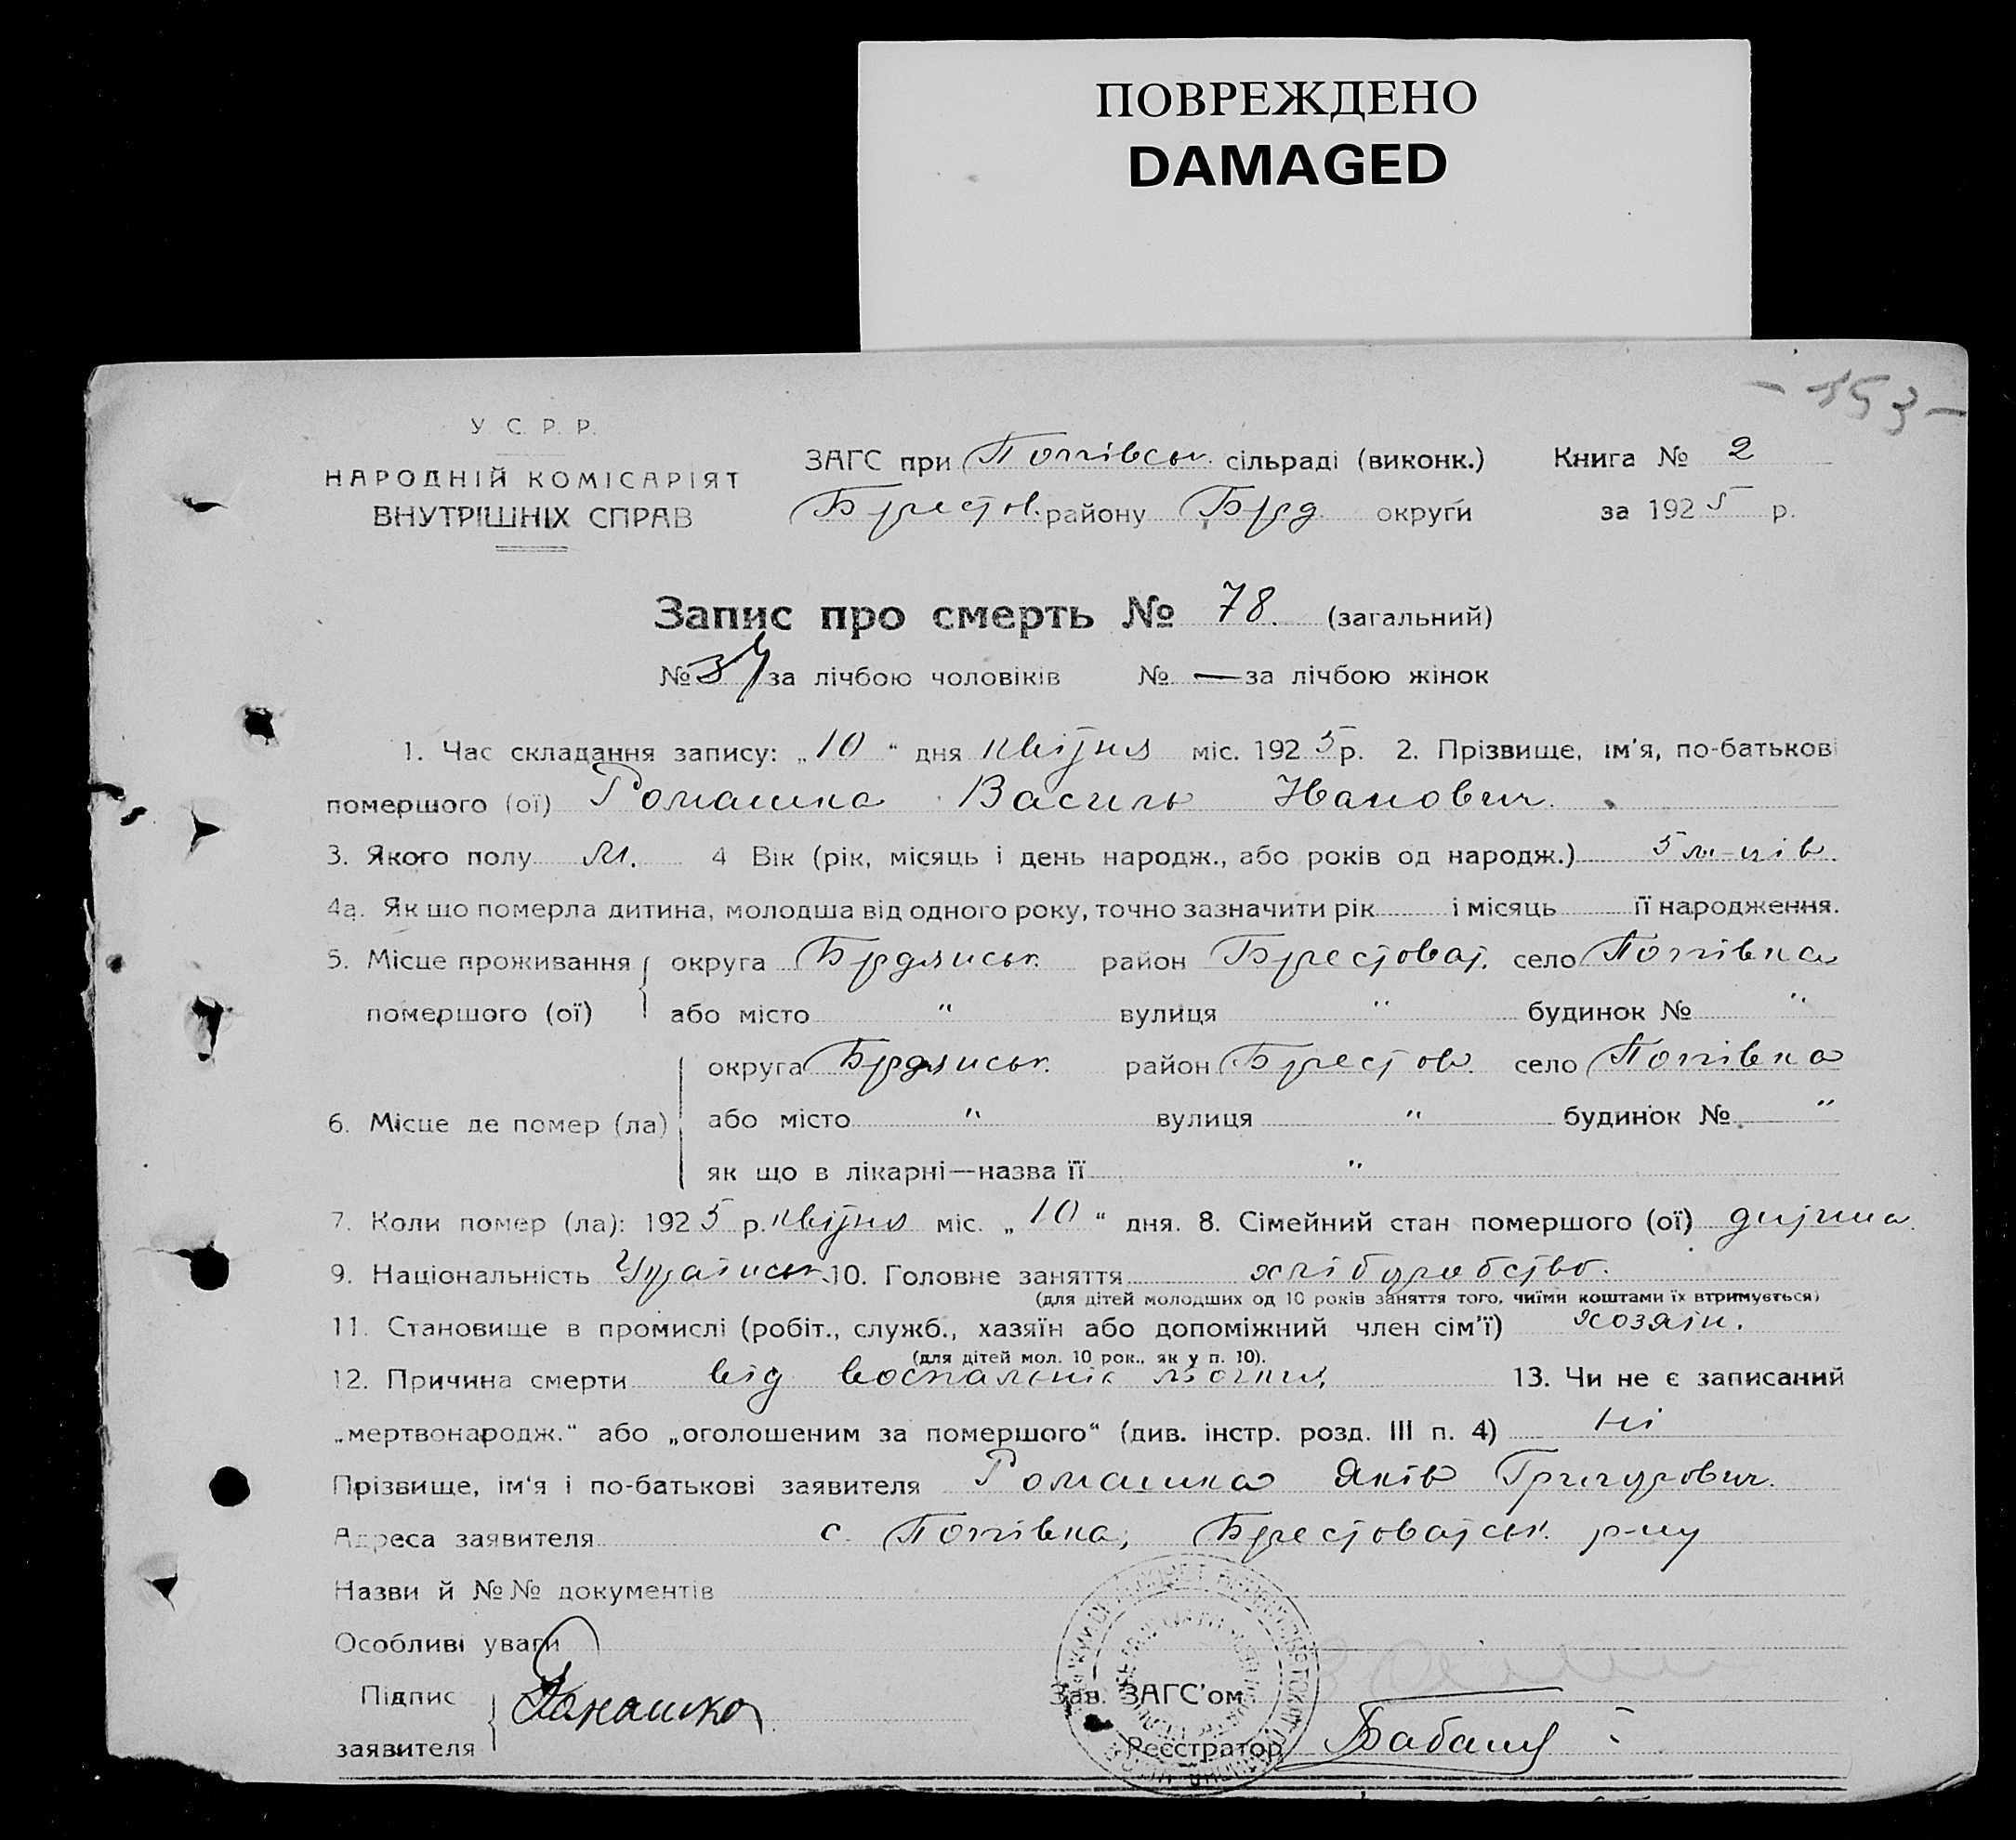 ПОВРЕЖДЕНО
DAMAGED
- 153 -
У. С. Р. Р.
НАРОДНІЙ КОМІСАРІЯТ
ВНУТРІШНІХ СПРАВ
ЗАГС при Попівськ. сільраді (виконк.) Книга № 2
Брестов. району Брд. округи за 1925 р.
Запис про смерть № 78. (загальний)
№ 34 за лічбою чоловіків № — за лічбою жінок
1. Час складання запису: „10“ дня квітня міс. 1925 р. 2. Прізвище, ім'я, по-батькові
помершого (ої) Ромашка Василь Иванович.
3. Якого полу м. 4 Вік (рік, місяць і день народж., або років од народж.) 5 м-ців.
4а. Як що померла дитина, молодша від одного року, точно зазначити рік і місяць її народження.
5. Місце проживання округа Брдянськ. район Брестоват. село Попівка
помершого (ої) або місто " вулиця " будинок № "
округа Брдянськ. район Брестов. село Попівка
6. Місце де помер (ла) або місто " вулиця " будинок № "
як що в лікарні—назва її "
7. Коли помер (ла): 1925 р. квітня міс. „10“ дня. 8. Сімейний стан помершого (ої) дитина.
9. Національність Україньск. 10. Головне заняття хліборобство.
(для дітей молодших од 10 років заняття того, чиїми коштами їх втримується)
11. Становище в промислі (робіт., служб., хазяїн або допоміжний член сім'ї) хозяїн.
(для дітей мол. 10 рок., як у п. 10).
12. Причина смерти від воспаленіє 13. Чи не є записаний
„мертвонародж.“ або „оголошеним за помершого“ (див. інстр. розд. III п. 4) Ні
Прізвище, ім'я і по-батькові заявителя Ромашка Яків Григорович.
Адреса заявителя с. Попівка, Брестоватськ. р-ну
Назви й №№ документів
Особливі уваги
Підпис Ромашка Зав. ЗАГС'ом
заявителя Реєстратор Бабаня